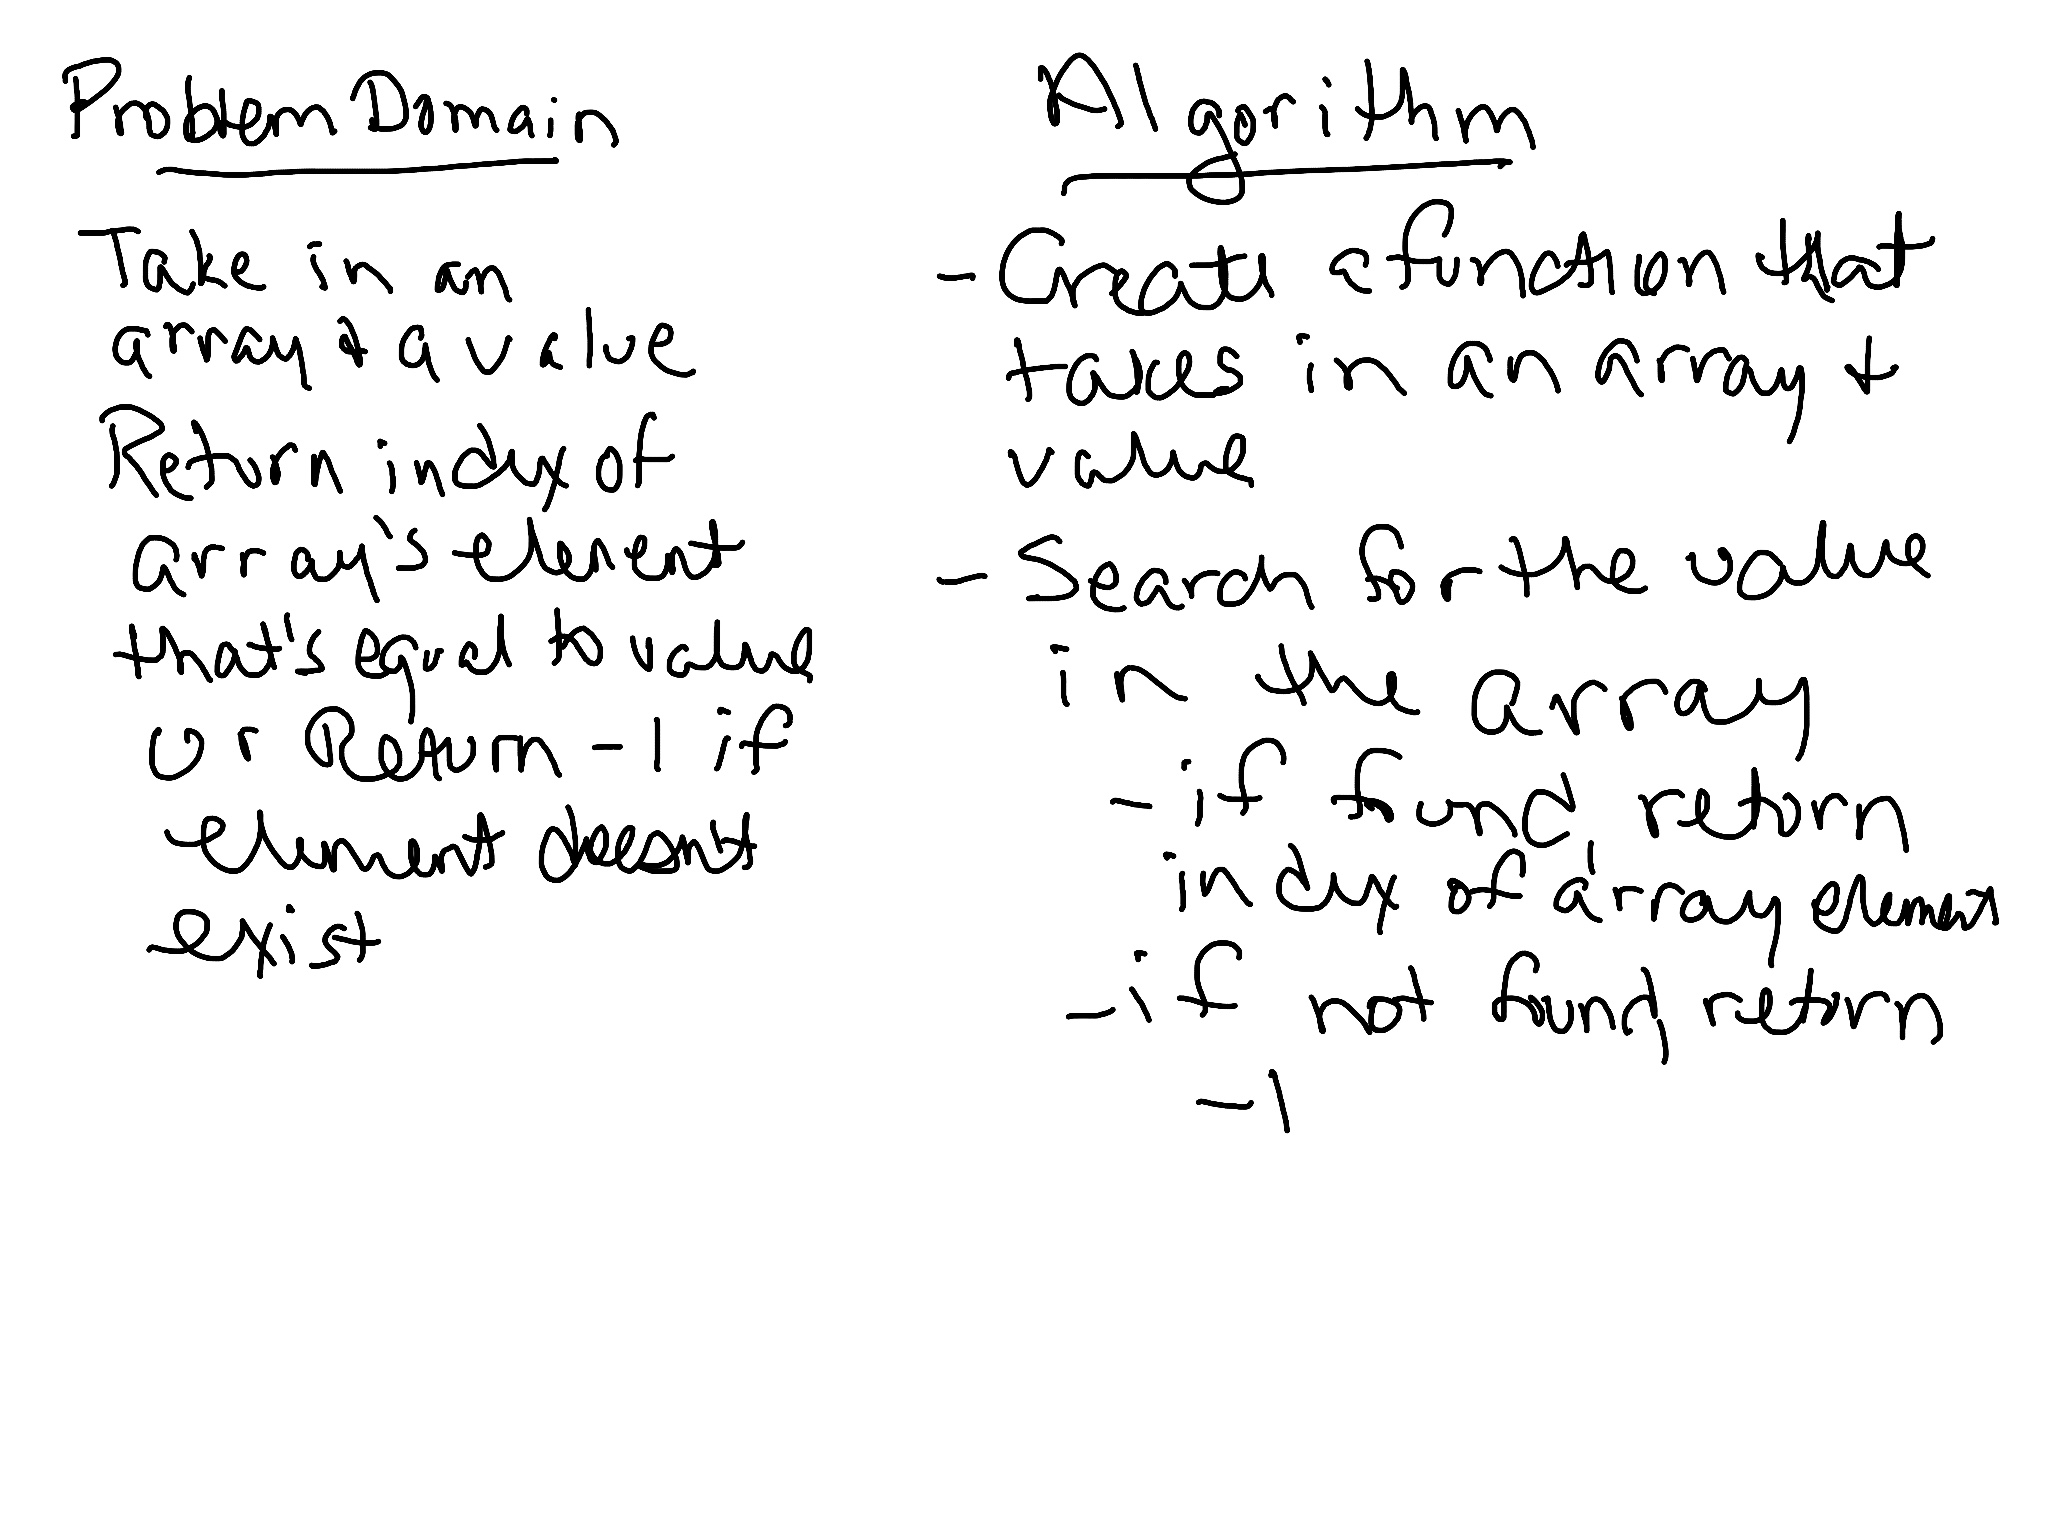 Problem Domain
Take in an
array & a value
Return index of
array's element
that's equal to value
or Return -1 if
element doesn't
exist
Algorithm
- Create a function that
takes in an array &
value
- Search for the value
in the array
- if found, return
index of array element
- if not found, return
-1